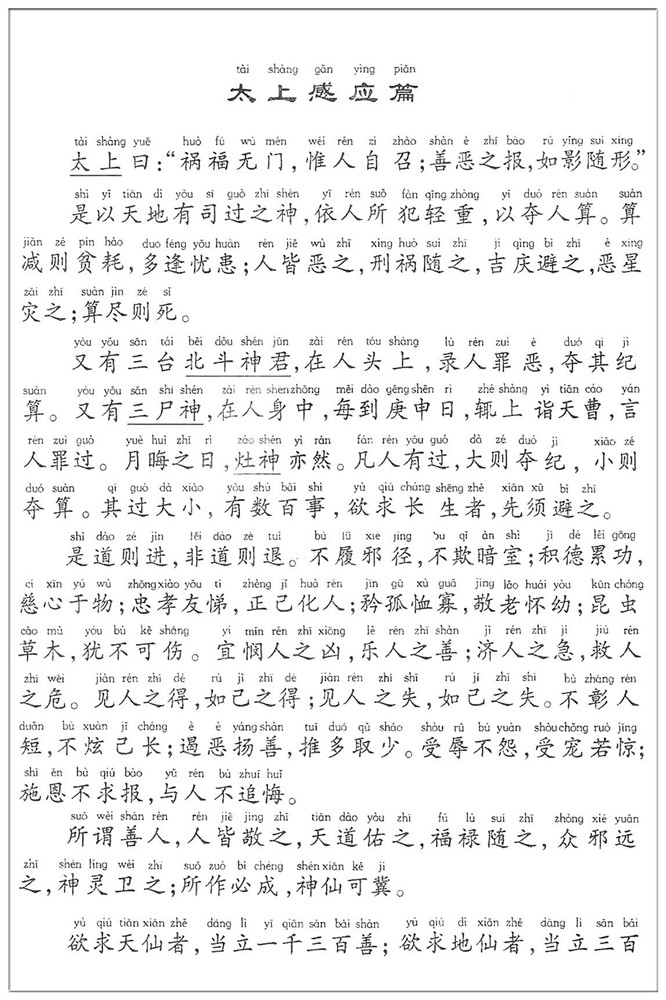 tài shàng gǎn yìng piān
太上感应篇
tài shàng yuē huò fú wú mén wéi rén zì zhào shàn è zhī bào rú yǐng suí xíng
太上曰：“祸福无门，惟人自召；善恶之报，如影随形。”
shì yǐ tiān dì yǒu sī guò zhī shén yī rén suǒ fàn qīng zhòng yǐ duó rén suàn suàn
是以天地有司过之神，依人所犯轻重，以夺人算。算
jiǎn zé pín hào duō féng yōu huàn rén jiē wù zhī xíng huò suí zhī jí qìng bì zhī è xīng
减则贫耗，多逢忧患；人皆恶之，刑祸随之，吉庆避之，恶星
zāi zhī suàn jìn zé sǐ
灾之；算尽则死。
yòu yǒu sān tái běi dǒu shén jūn zài rén tóu shàng lù rén zuì è duó qí jì
又有三台北斗神君，在人头上，录人罪恶，夺其纪
suàn yòu yǒu sān shī shén zài rén shēn zhōng měi dào gēng shēn rì zhé shàng yì tiān cáo yán
算。又有三尸神，在人身中，每到庚申日，辄上诣天曹，言
rén zuì guò yuè huì zhī rì zào shén yì rán fán rén yǒu guò dà zé duó jì xiǎo zé
人罪过。月晦之日，灶神亦然。凡人有过，大则夺纪，小则
duó suàn qí guò dà xiǎo yǒu shù bǎi shì yù qiú cháng shēng zhě xiān xū bì zhī
夺算。其过大小，有数百事，欲求长生者，先须避之。
shì dào zé jìn fēi dào zé tuì bù lǚ xié jìng bù qī àn shì jī dé lěi gōng
是道则进，非道则退。不履邪径，不欺暗室；积德累功，
cí xīn yú wù zhōng xiào yǒu tì zhèng jǐ huà rén jīn gū xù guǎ jìng lǎo huái yòu kūn chóng
慈心于物；忠孝友悌，正己化人；矜孤恤寡，敬老怀幼；昆虫
cǎo mù yóu bù kě shāng yí mǐn rén zhī xiōng lè rén zhī shàn jì rén zhī jí jiù rén
草木，犹不可伤。宜悯人之凶，乐人之善；济人之急，救人
zhī wēi jiàn rén zhī dé rú jǐ zhī dé jiàn rén zhī shī rú jǐ zhī shī bù zhāng rén
之危。见人之得，如己之得；见人之失，如己之失。不彰人
duǎn bù xuàn jǐ cháng è è yáng shàn tuī duō qǔ shǎo shòu rǔ bù yuàn shòu chǒng ruò jīng
短，不炫己长；遏恶扬善，推多取少。受辱不怨，受宠若惊；
shī ēn bù qiú bào yǔ rén bù zhuī huǐ
施恩不求报，与人不追悔。
suǒ wèi shàn rén rén jiē jìng zhī tiān dào yòu zhī fú lù suí zhī zhòng xié yuǎn
所谓善人，人皆敬之，天道佑之，福禄随之，众邪远
zhī shén líng wèi zhī suǒ zuò bì chéng shén xiān kě jì
之，神灵卫之；所作必成，神仙可冀。
yù qiú tiān xiān zhě dāng lì yī qiān sān bǎi shàn yù qiú dì xiān zhě dāng lì sān bǎi
欲求天仙者，当立一千三百善；欲求地仙者，当立三百